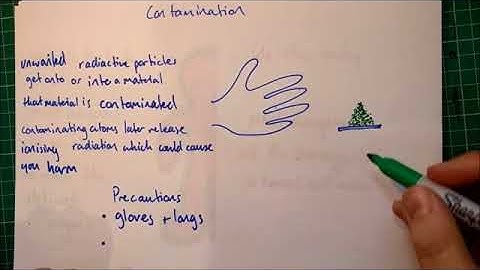 Contamination
unwanted radiactive particles
get onto or into a material
that material is contaminated
contaminating atoms later release
ionising radiation which could cause
you harm
Precautions
• gloves + tongs
•
Sharpie